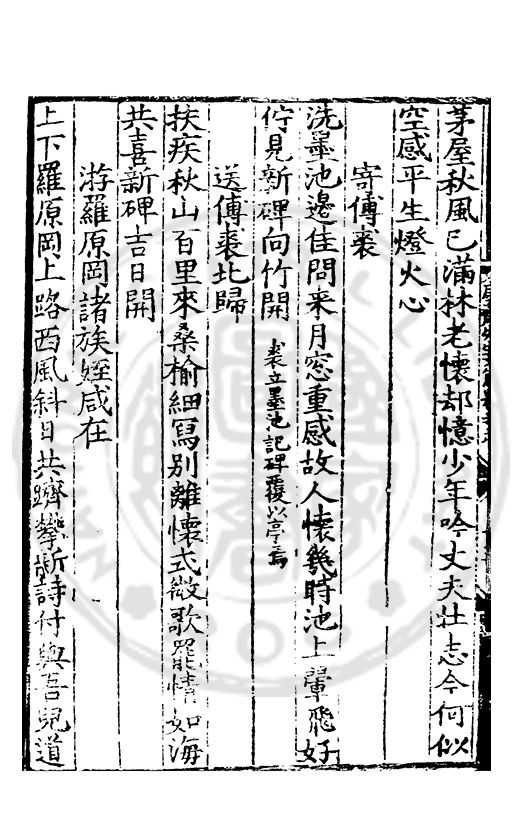 茅屋秋風已滿林老懷却憶少年吟丈夫壯志今何似
空感平生燈火心
寄傅裘
洗墨池邊佳問来月窓重感故人懷幾時池上翬飛好
佇見新碑向竹開裘立墨池記碑覆以亭焉
送傅裘北歸
扶疾秋山百里來桑榆細寫别離懷式微歌罷情如海
共喜新碑吉日開
游羅原岡諸族姪咸在
上下羅原岡上路西風斜日共躋攀新詩付與吾兒道